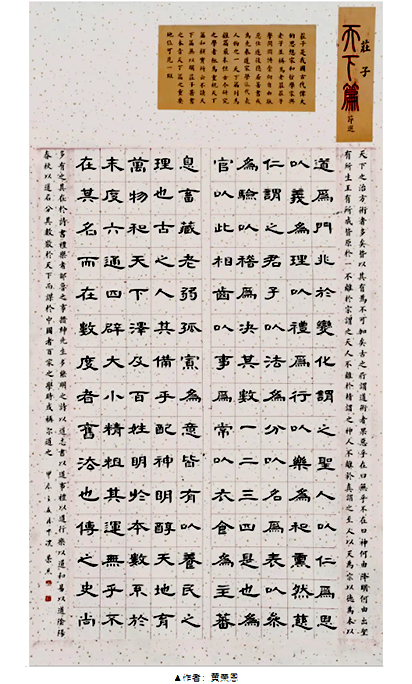 莊子
天下篇
節選
莊子是我國古代偉大
的思想家和哲學家與
天下之治方術者多矣皆以其有爲不可加矣古之所謂道術者果惡乎在曰無乎不在曰神何由降明何由出聖
有所生王有所成皆原於一不離於宗謂之天人不離於精謂之神人不離於真謂之至人以天爲宗以德爲本以
道爲門兆於變化謂之聖人以仁爲恩
以義爲理以禮爲行以樂爲和熏然慈
仁謂之君子以法爲分以名爲表以參
爲驗以稽爲決其數一二三四是也
官以此相齒以事爲常以衣食爲主蕃
息畜藏老弱孤寡爲意皆有以養民之
理也古之人其備乎配神明醇天地育
萬物和天下澤及百姓明於本數系於
末度六通四辟大小精粗其運無乎不
在其名而在數度者舊法也傳之史尚
多有之其在於詩書禮樂者鄒魯之士搢紳先生多能明之詩以道志書以道事禮以道行樂以道和易以道陰陽
春秋以道名分其數散於天下而設於中國者百家之學時或稱而道之 甲辰
▲作者：黄荣恩